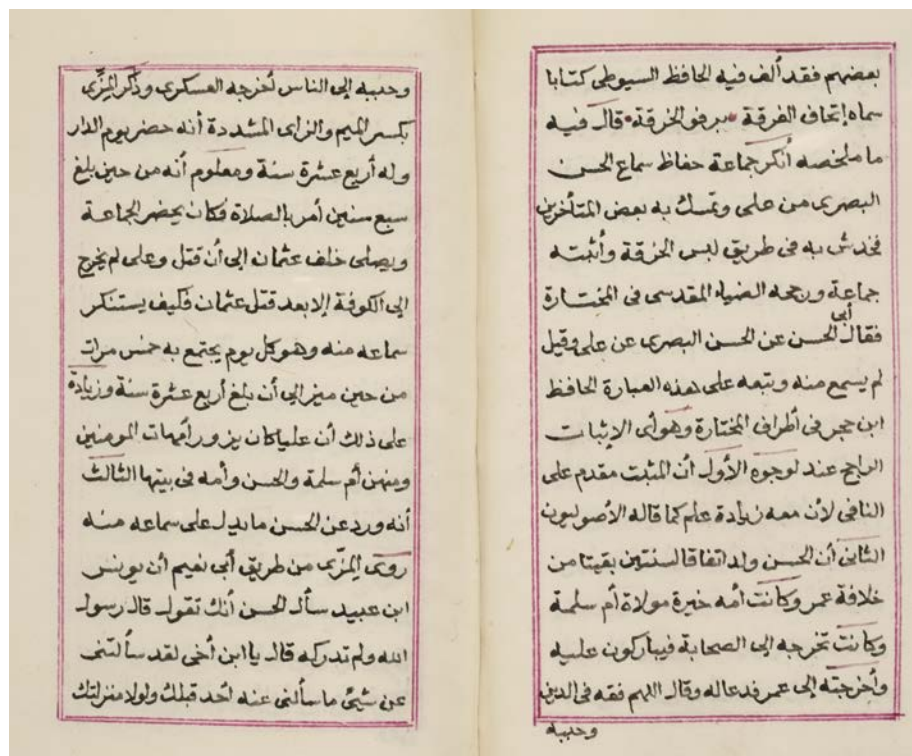 بعضهم فقد ألف فيه الحافظ السيوطى كتابا
سماه إتحاف الفرقة برفو الخرقة قال فيه
ما ملخصه أنكر جماعة حفاظ سماع الحسن
البصرى من على وتمسك به بعض المتأخرين
فخدش به فى طريق لبس الخرقة وأثبته
جماعة ورجحه الضياء المقدسى فى المختارة
فقال الحسن عن الحسن البصرى عن على وقيل
أبى
لم يسمع منه وتبعه على هذه العبارة الحافظ
ابن حجر فى أطراف المختارة وهو أى الإثبات
الراجح عند لوجوه الأول أن المثبت مقدم على
النافى لأن معه زيادة علم كما قاله الأصوليون
الثانى أن الحسن ولد اتفاقا لسنتين بقيتا من
خلافة عمر وكانت أمه خيرة مولاة أم سلمة
وكانت تخرجه إلى الصحابة فيباركون عليه
وأخرجته إلى عمر فدعا له وقال اللهم فقه فى الدين
وحببه
وحببه إلى الناس أخرجه العسكرى وذكر المِزِّى
بكسر الميم والزاى المشددة أنه حضر يوم الدار
وله أربع عشرة سنة ومعلوم أنه من حين بلغ
سبع سنين أمر بالصلاة فكان يحضر الجماعة
ويصلى خلف عثمان إلى أن قتل وعلى لم يخرج
إلى الكوفة إلا بعد قتل عثمان فكيف يستنكر
سماعه منه وهو كل يوم يجتمع به خمس مرات
من حين ميز إلى أن بلغ أربع عشرة سنة وزيادة
على ذلك أن عليا كان يزور أمهات المومنين
ومنهن أم سلمة والحسن وأمه فى بيتها الثالث
أنه ورد عن الحسن ما يدل على سماعه منه
روى المِزّى من طريق أبى نعيم أن يونس
ابن عبيد سأل الحسن أنك تقول قال رسول
الله ولم تدركه قال يا ابن أخى لقد سألتنى
عن شئ ما سألنى عنه أحد قبلك ولولا منزلتك